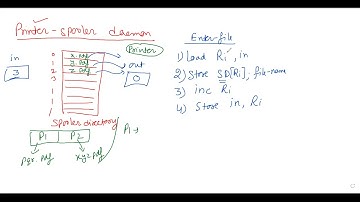 Printer-spooler daemon
in
3
0
1
2
3
x.pdf
y.pdf
z.pdf
Printer
out
0
spooler directory
P1 P2
pqr.pdf
xyz.pdf
P1 →
Enter-file
1) Load Ri, in
2) Store SD[Ri], file-name
3) inc Ri
4) Store in, Ri